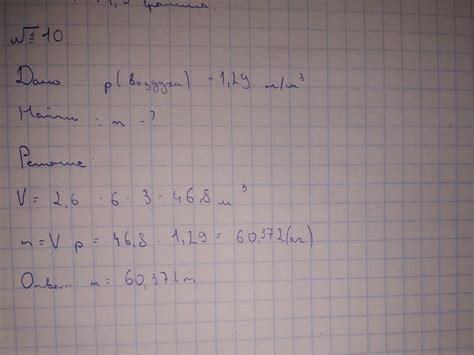 № 10.
Дано: p(воздуха) = 1,29 кг/м³
Найти: m - ?
Решение:
V = 2,6 · 6 · 3 = 46,8 м³
m = V p = 46,8 · 1,29 = 60,372 (кг)
Ответ: m = 60,372 кг.